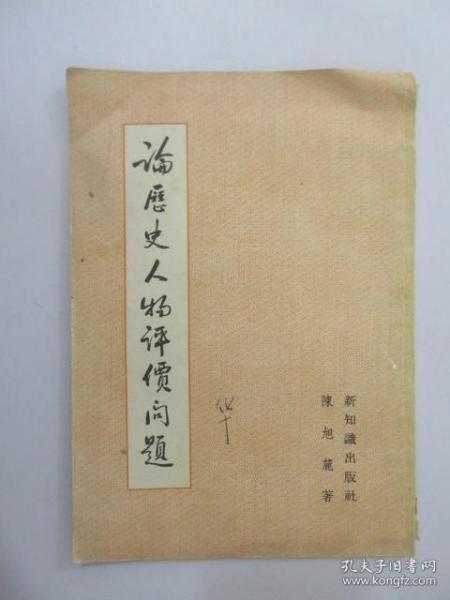 論歷史人物評價問題
华
新知識出版社
陳旭麓著
孔夫子旧书网
www.kongfz.com